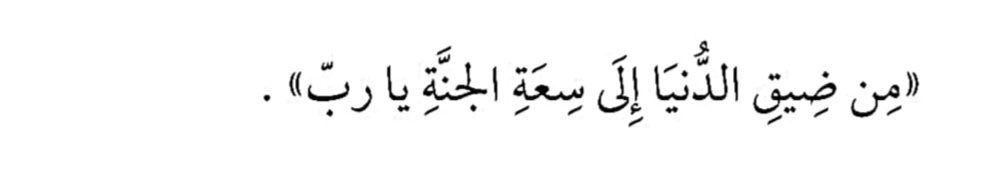 «مِن ضِيقِ الدُّنيَا إِلَى سِعَةِ الجنَّةِ يا ربّ» .